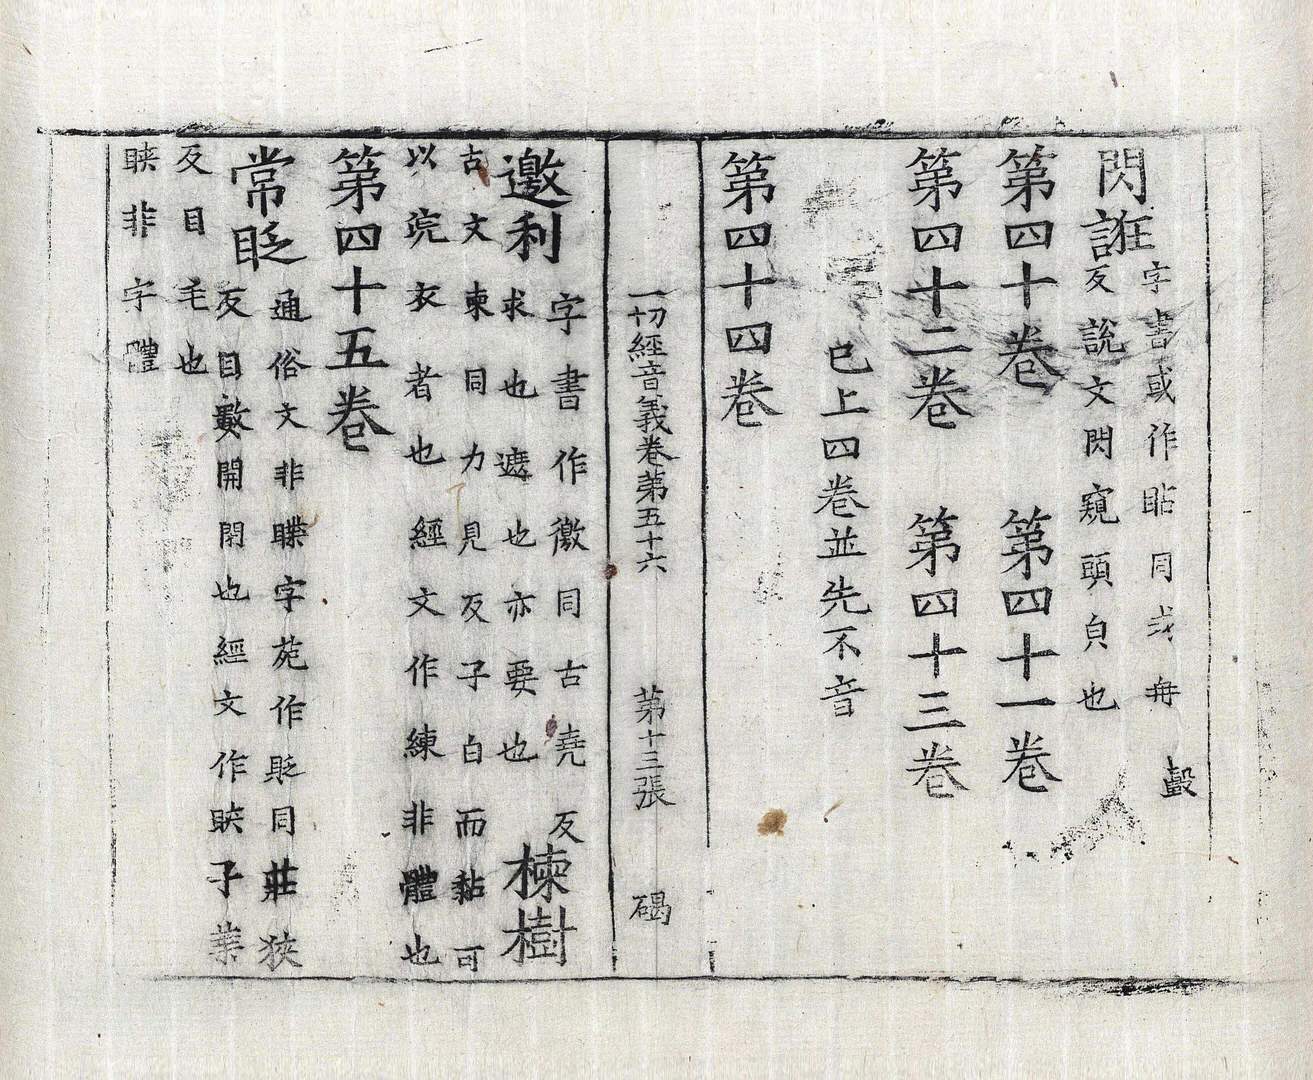 閃誑
字書或作䀡同式冉
反說文閃窺頭皃也
第四十卷　第四十一卷
第四十二卷　第四十三卷
已上四卷並先不音
第四十四卷
一切經音義卷第五十六　第十三張　碣
邀利
字書作徼同古堯反
求也遮也亦要也
楝樹
古文柬同力見反子白而黏可
以浣衣者也經文作練非體也
第四十五卷
常眨
通俗文非䁋字苑作貶同莊狹
反目數開閉也經文作䀹子葉
反目毛也
䀹非字體